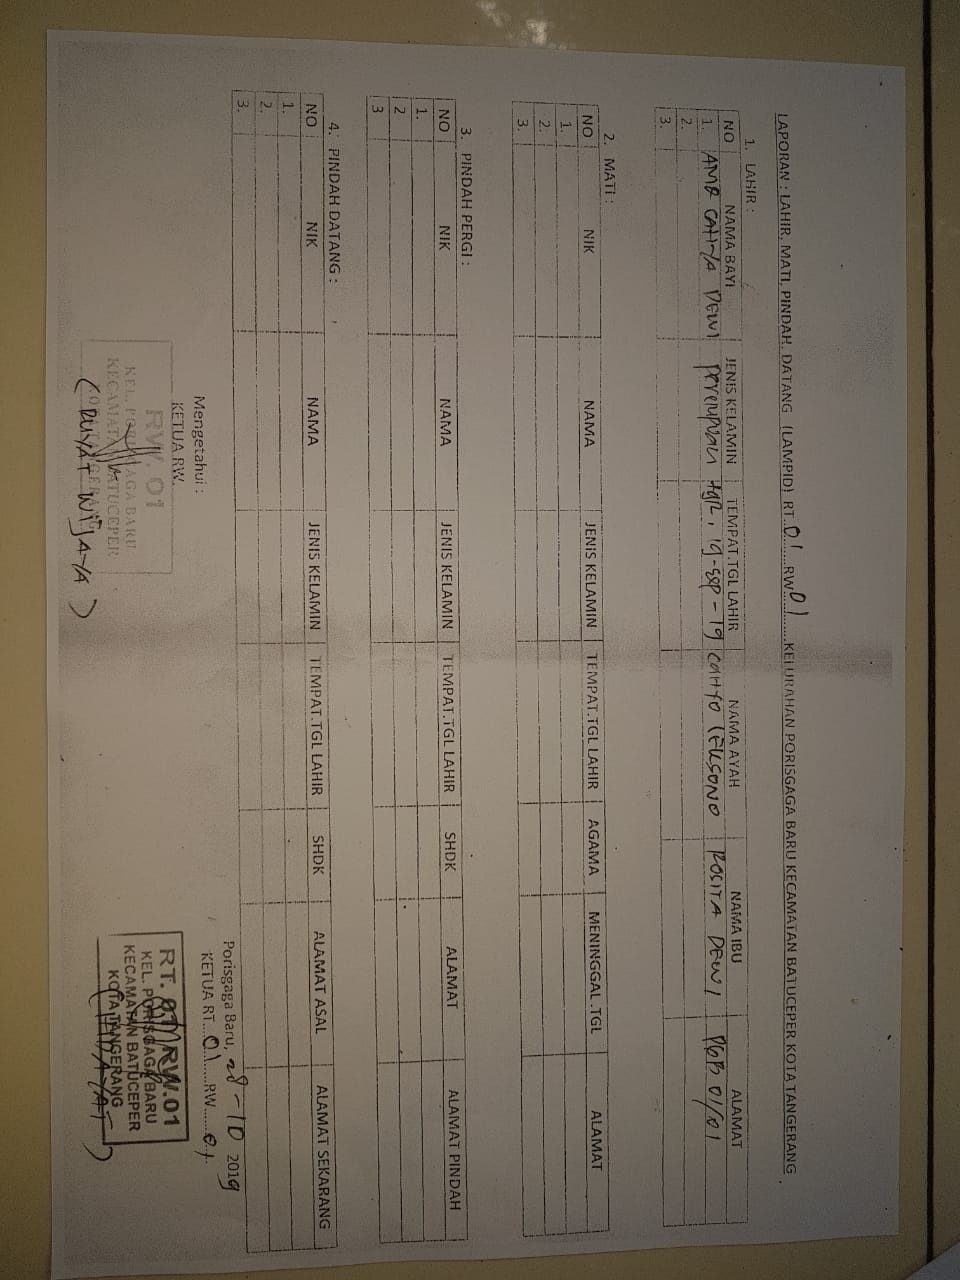 LAPORAN : LAHIR, MATI, PINDAH, DATANG (LAMPID) RT..01......RW..01......KELURAHAN PORISGAGA BARU KECAMATAN BATUCEPER KOTA TANGERANG
1. LAHIR :
NO NAMA BAYI JENIS KELAMIN TEMPAT.TGL LAHIR NAMA AYAH NAMA IBU ALAMAT
1. DEWI perempuan 19-sep-19 ROSITA DEWI PGB 01/01
2.
3.
2. MATI :
NO NIK NAMA JENIS KELAMIN TEMPAT.TGL LAHIR AGAMA MENINGGAL .TGL ALAMAT
1.
2.
3.
3. PINDAH PERGI :
NO NIK NAMA JENIS KELAMIN TEMPAT.TGL LAHIR SHDK ALAMAT ALAMAT PINDAH
1.
2
3
4. PINDAH DATANG :
NO NIK NAMA JENIS KELAMIN TEMPAT.TGL LAHIR SHDK ALAMAT ASAL ALAMAT SEKARANG
1.
2.
3.
Porisgaga Baru, 28-10 2019
Mengetahui :
KETUA RW.
KETUA RT...01......RW......01.
RW. 01
KEL. PORISGAGA BARU
KECAMATAN BATUCEPER
( RUYAT WIJAYA )
RT. 01/RW.01
KEL. PORISGAGA BARU
KECAMATAN BATUCEPER
KOTA TANGERANG